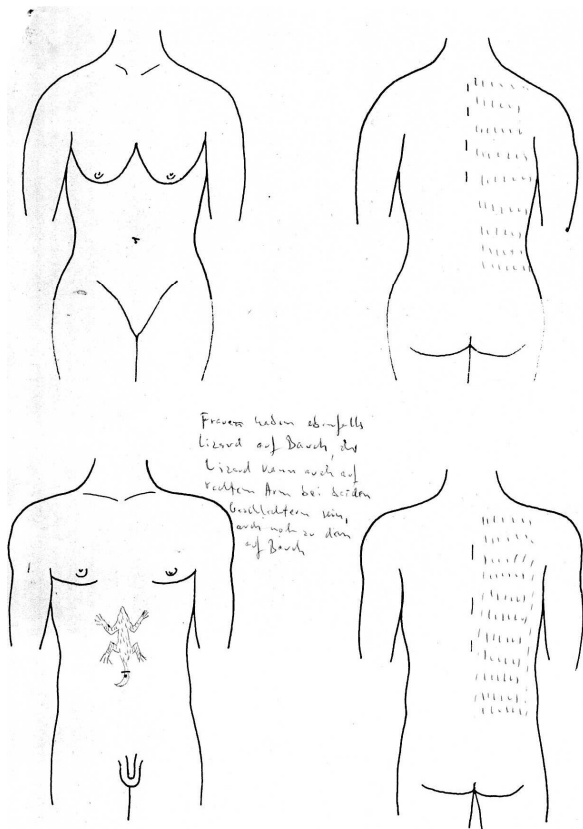 Frauen haben ebenfalls
Lizard auf Bauch, der
Lizard kann auch auf
rechtem Arm bei beiden
Geschlechtern sein,
auch noch zu dem
auf Bauch